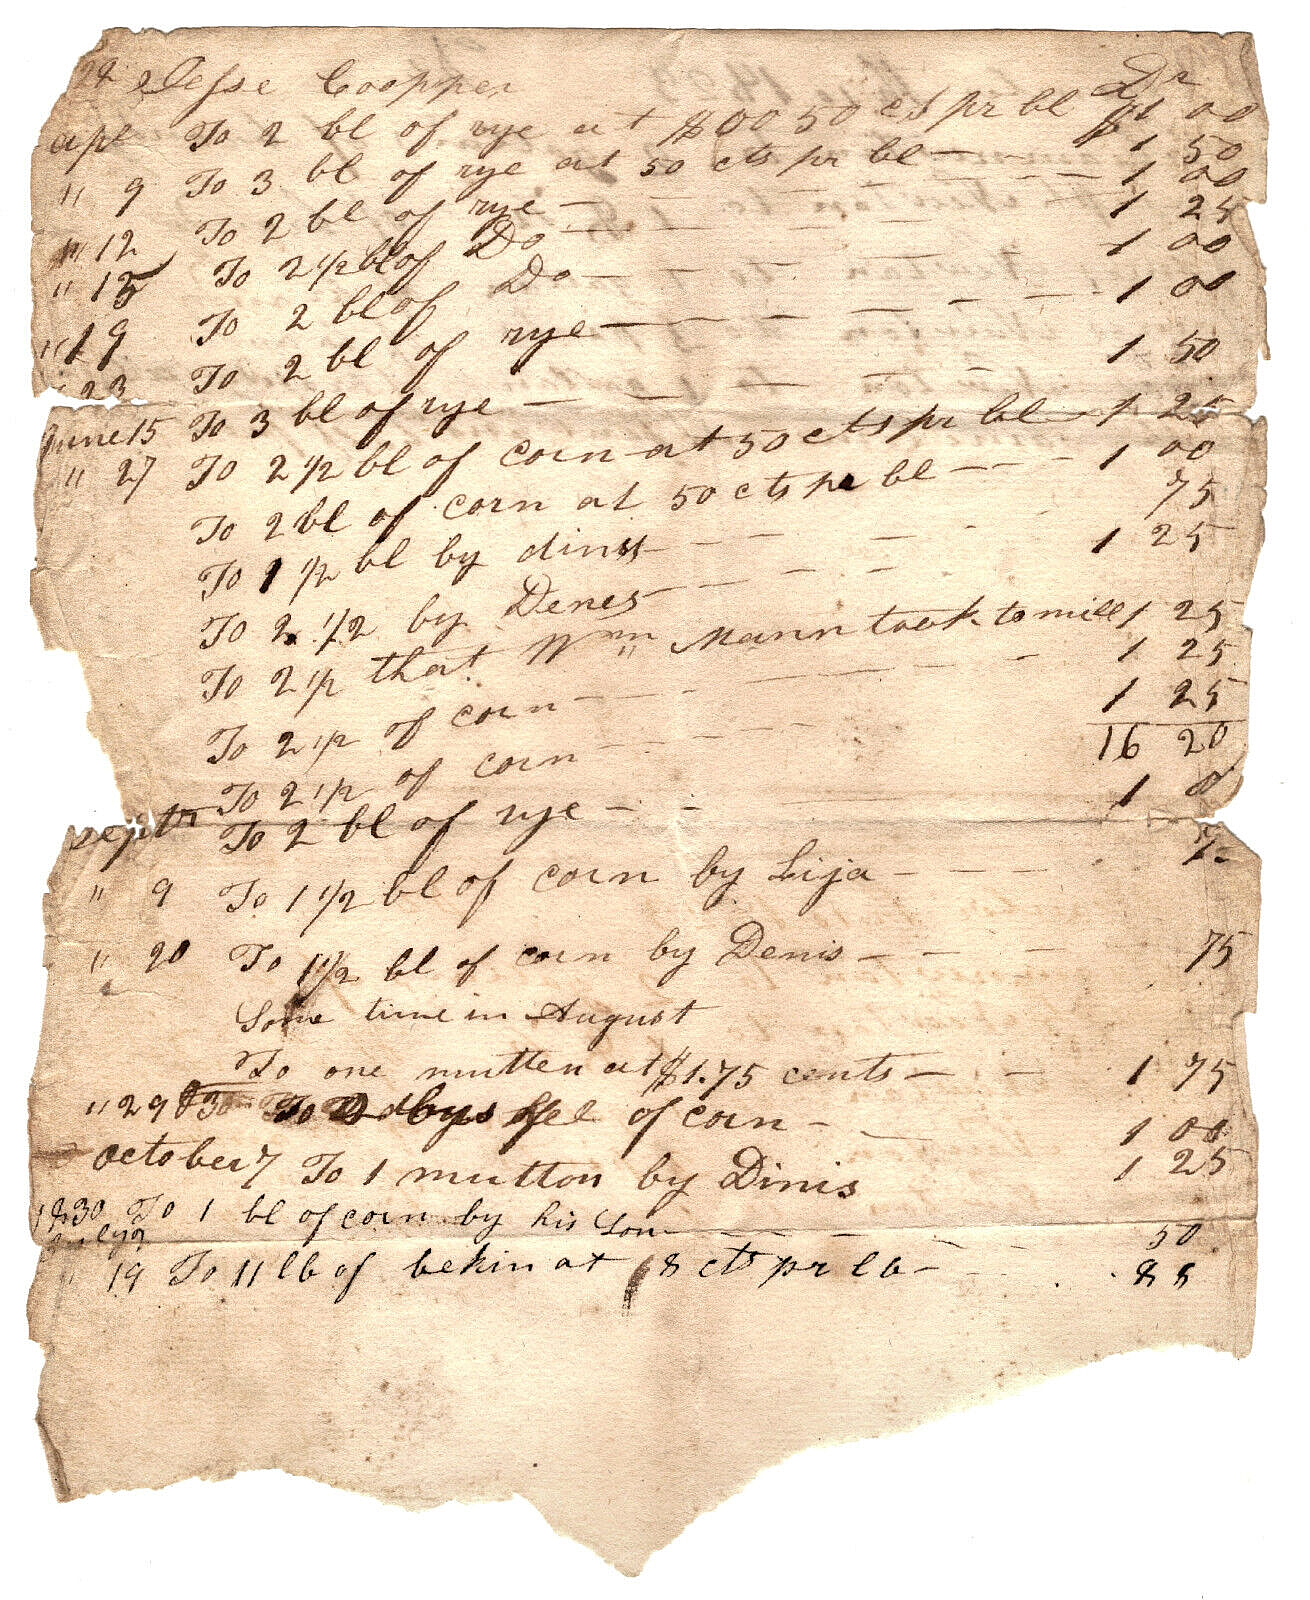 Jesse Coopper Dr
apl To 2 bl of rye at $00 50 cts pr bl $1 00
" 9 To 3 bl of rye at 50 cts pr bl 1 50
" 12 To 2 bl of rye 1 00
" 15 To 2 1/2 bl of Do 1 25
" 19 To 2 bl of Do 1 00
" 23 To 2 bl of rye 1 00
June 15 To 3 bl of rye 1 50
" 27 To 2 1/2 bl of corn at 50 cts pr bl 1 25
To 2 bl of corn at 50 cts pr bl 1 00
To 1 1/2 bl by 75
To 2 1/2 by Denes 1 25
To 2 1/2 that Wm Mann took to mill 1 25
To 2 1/2 of corn 1 25
To 2 1/2 of corn 1 25
16 20
septr To 2 bl of rye 1 0
" 9 To 1 1/2 bl of corn by Lija 7
" 20 To 1 1/2 bl of corn by Denis 75
Some time in August
To one mutten at $1.75 cents 1 75
" 29 To 2 bl of corn 1 00
October 7 To 1 mutton by Dinis 1 25
1830 To 1 bl of corn by his Son 50
July 2
" 19 To 11 lb of bekin at 8 cts pr lb 88